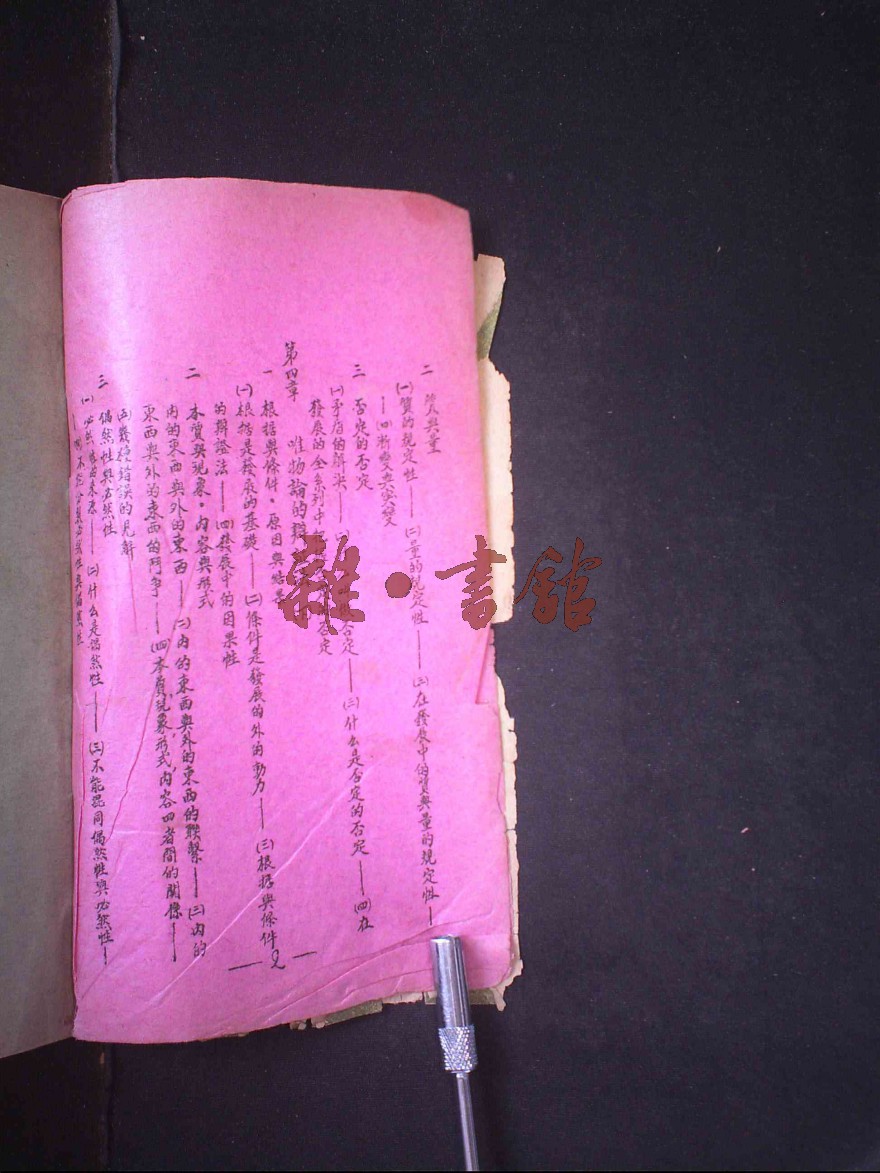 二 質與量
(一)質的規定性——(二)量的規定性——(三)在發展中的質與量的規定性——
—(四)漸變與突變
三 否定的否定
(一)矛盾的解決——否定——(三)什么是否定的否定——(四)在
發展的全系列中否定
第四章 唯物論的
一 根据與條件·原因與結果
(一)根据是發展的基礎——(二)條件是發展的外的動力——(三)根据與條件
的辯證法——(四)發展中的因果性
二 本質與現象·內容與形式
內的東西與外的東西——(二)內的東西與外的東西的聯繫——(三)內的
東西與外的東西的鬥爭——(四)本質現象形式內容四者間的關係——
(五)幾種錯誤的見解
三 偶然性與必然性
(一)必然性的來源——(二)什么是偶然性——(三)不能混同偶然性與必然性—
—(四)不能分裂必然性與偶然性
—2—
雜·書館